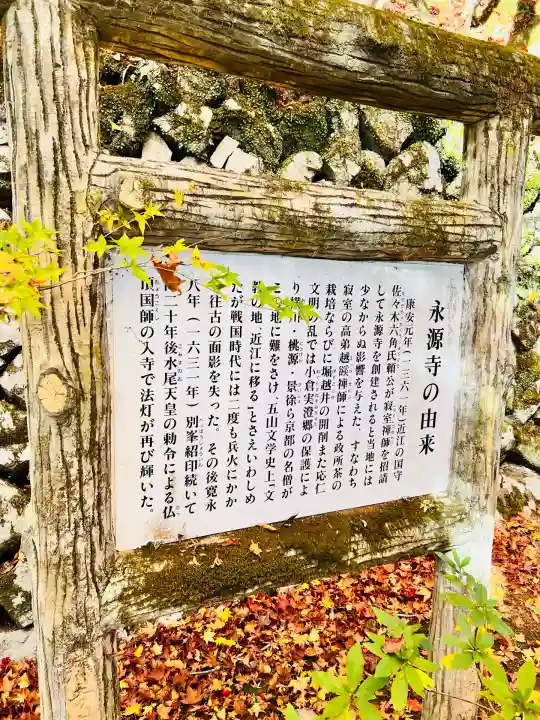 永源寺の由来
康安元年(一三六一年)近江の国守
佐々木六角氏頼公が寂室禅師を招請
して永源寺を創建されると当地には
少なからぬ影響を与えた。すなわち
寂室の高弟越谿禅師による政所茶の
栽培ならびに堀越井の開削また応仁
文明の乱では小倉実澄郷の保護によ
り横川 桃源・景徐ら京都の名僧が
の地に難をさけ、五山文学史上「文
の地、近江に移る」とさえいわしめ
たが戦国時代には二度も兵火にかか
往古の面影を失った。その後寛永
八年(一六三一年)別峯紹印続いて
二十年後水尾天皇の勅令による仏
頂国師の入寺で法灯が再び輝いた。